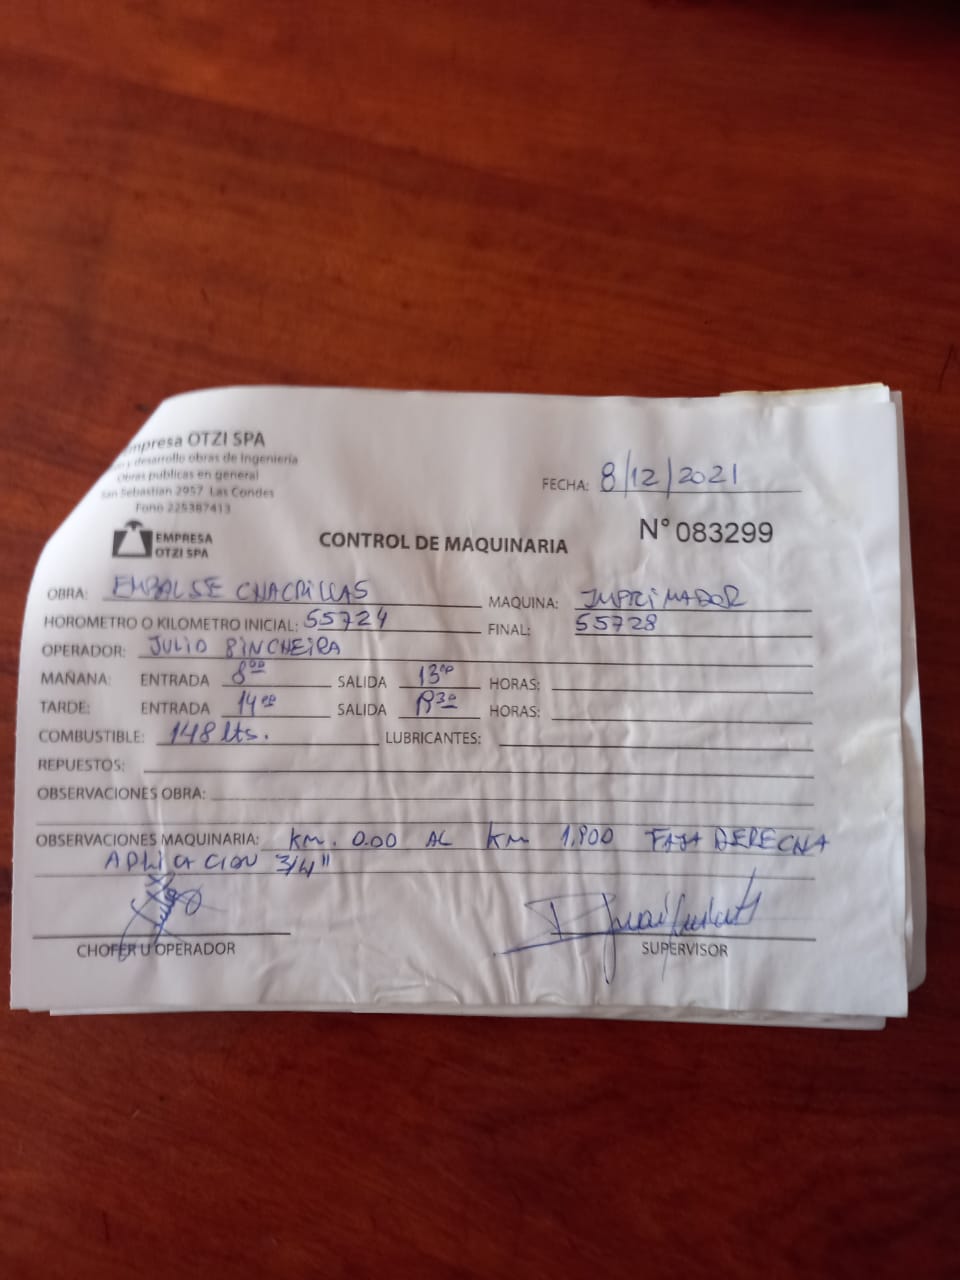 Empresa OTZI SPA
y desarrollo obras de Ingeniería
Obras publicas en general
San Sebastian 2957 Las Condes
Fono 225387413
FECHA: 8/12/2021
EMPRESA
OTZI SPA
CONTROL DE MAQUINARIA
N° 083299
OBRA: EMBALSE CHACRILLAS MAQUINA: IMPRIMADOR
HOROMETRO O KILOMETRO INICIAL: 55724 FINAL: 55728
OPERADOR: JULIO PINCHEIRA
MAÑANA: ENTRADA 8°° SALIDA 13°° HORAS:
TARDE: ENTRADA 14°° SALIDA HORAS:
COMBUSTIBLE: 148 lts. LUBRICANTES:
REPUESTOS:
OBSERVACIONES OBRA:
OBSERVACIONES MAQUINARIA: Km. 0.00 AL Km 1,900 FAJA DERECHA
APLICACION 3/4"
CHOFER U OPERADOR SUPERVISOR